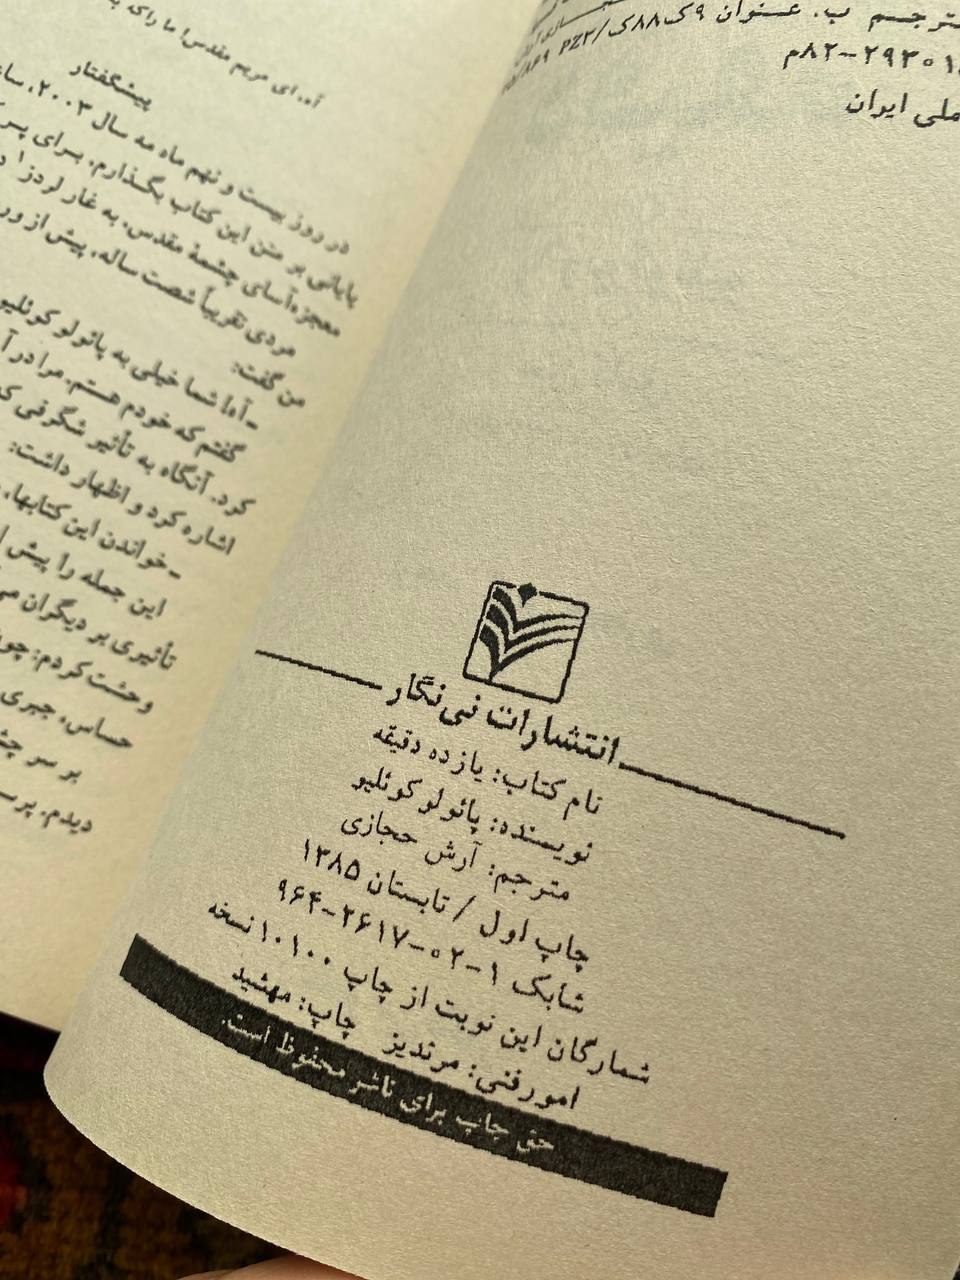 مترجم ب. عنوان ۹ک۸۸ک/PZ۳
۸۲-۲۹۳۰۱م
ملی ایران
انتشارات نی‌نگار
نام کتاب: یازده دقیقه
نویسنده: پائولو کوئلیو
مترجم: آرش حجازی
چاپ اول / تابستان ۱۳۸۵
شابک ۱-۰۲-۲۶۱۷-۹۶۴
شمارگان این نوبت از چاپ ۱۰۱۰۰ نسخه
امور فنی: مرندیز چاپ: مهشید
حق چاپ برای ناشر محفوظ است.
آه، ای مریم مقدس! ما را که
پیشگفتار
در روز بیست و نهم ماه مه سال ۲۰۰۳،
پایانی بر متن این کتاب بگذارم، برای
معجزه‌آسای چشمهٔ مقدس، به غار لردز۱
مردی تقریباً شصت ساله، پیش از
من گفت:
ـ آه! شما خیلی به پائولو کوئلیو
گفتم که خودم هستم. مرا در
کرد. آنگاه به تأثیر شگرفی
اشاره کرد و اظهار داشت:
ـ خواندن این کتابها،
این جمله را پیش
تأثیری بر دیگران
وحشت کردم؛
حساس، جبری
بر سر
دیدم.